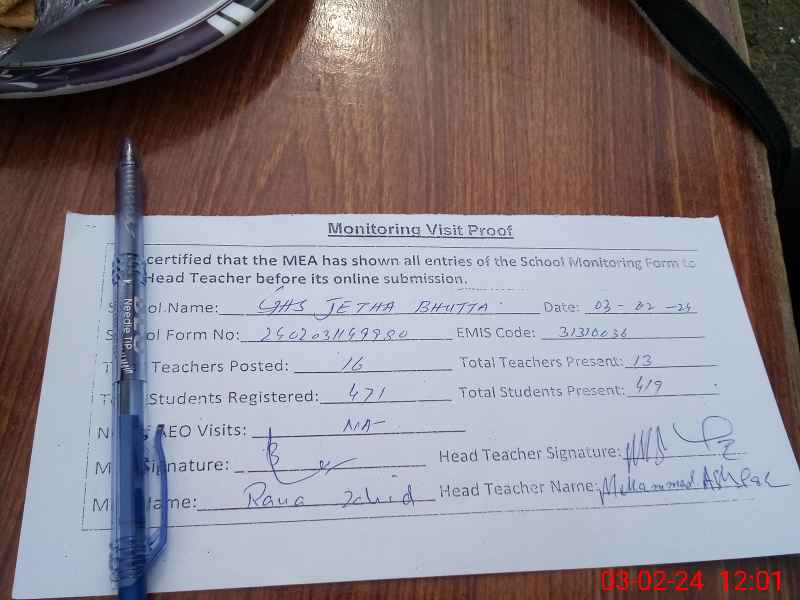 Monitoring Visit Proof
certified that the MEA has shown all entries of the School Monitoring Form to
Head Teacher before its online submission.
ol Name: GHS JETHA BHUTTA Date: 03-02-24
ol Form No: 240203149980 EMIS Code: 31310036
Teachers Posted: 16 Total Teachers Present: 13
Students Registered: 471 Total Students Present: 419
AEO Visits: NA-
Signature: Head Teacher Signature:
ame: Rana Zahid Head Teacher Name: Muhammad Ashfaq
Needle Tip
03-02-24 12:01